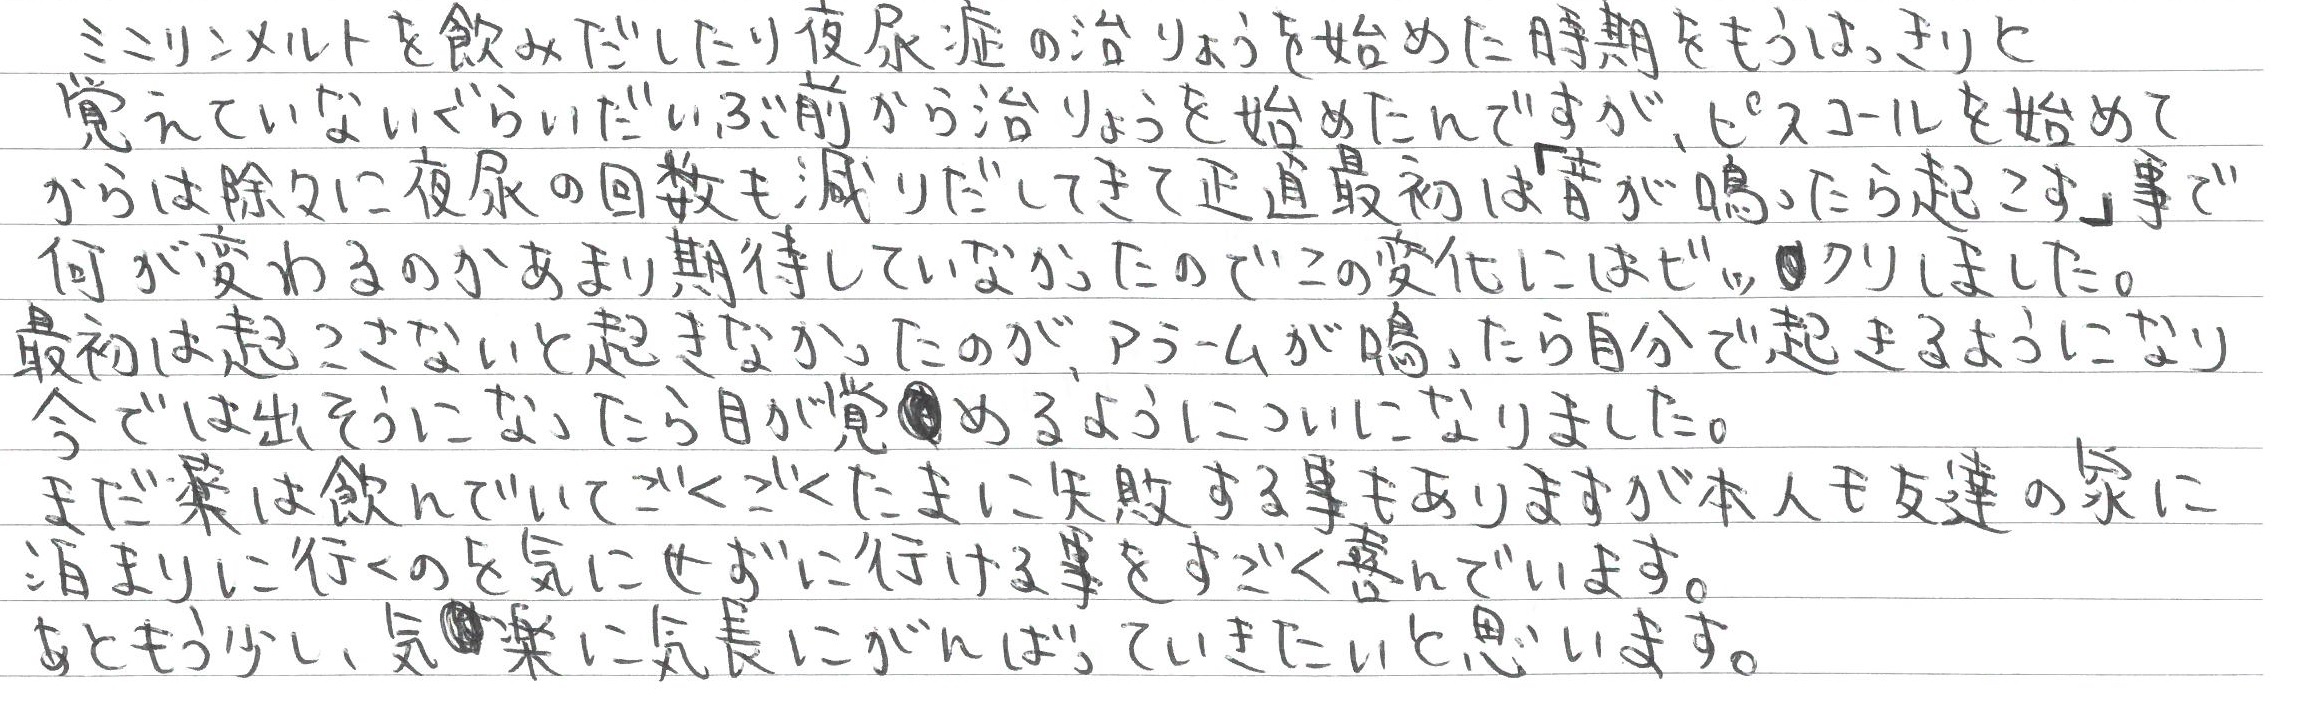 ミニリンメルトを飲みだしたり夜尿症の治りょうを始めた時期をもうはっきりと
覚えていないぐらいだいぶ前から治りょうを始めたんですが、ピスコールを始めて
からは除々に夜尿の回数も減りだしてきて正直最初は「音が鳴ったら起こす」事で
何が変わるのかあまり期待していなかったのでこの変化にはビックリしました。
最初は起こさないと起きなかったのが、アラームが鳴ったら自分で起きるようになり
今では出そうになったら目が覚めるようについになりました。
まだ薬は飲んでいてごくごくたまに失敗する事もありますが本人も友達の家に
泊まりに行くのを気にせずに行ける事をすごく喜んでいます。
あともう少し、気楽に気長にがんばっていきたいと思います。